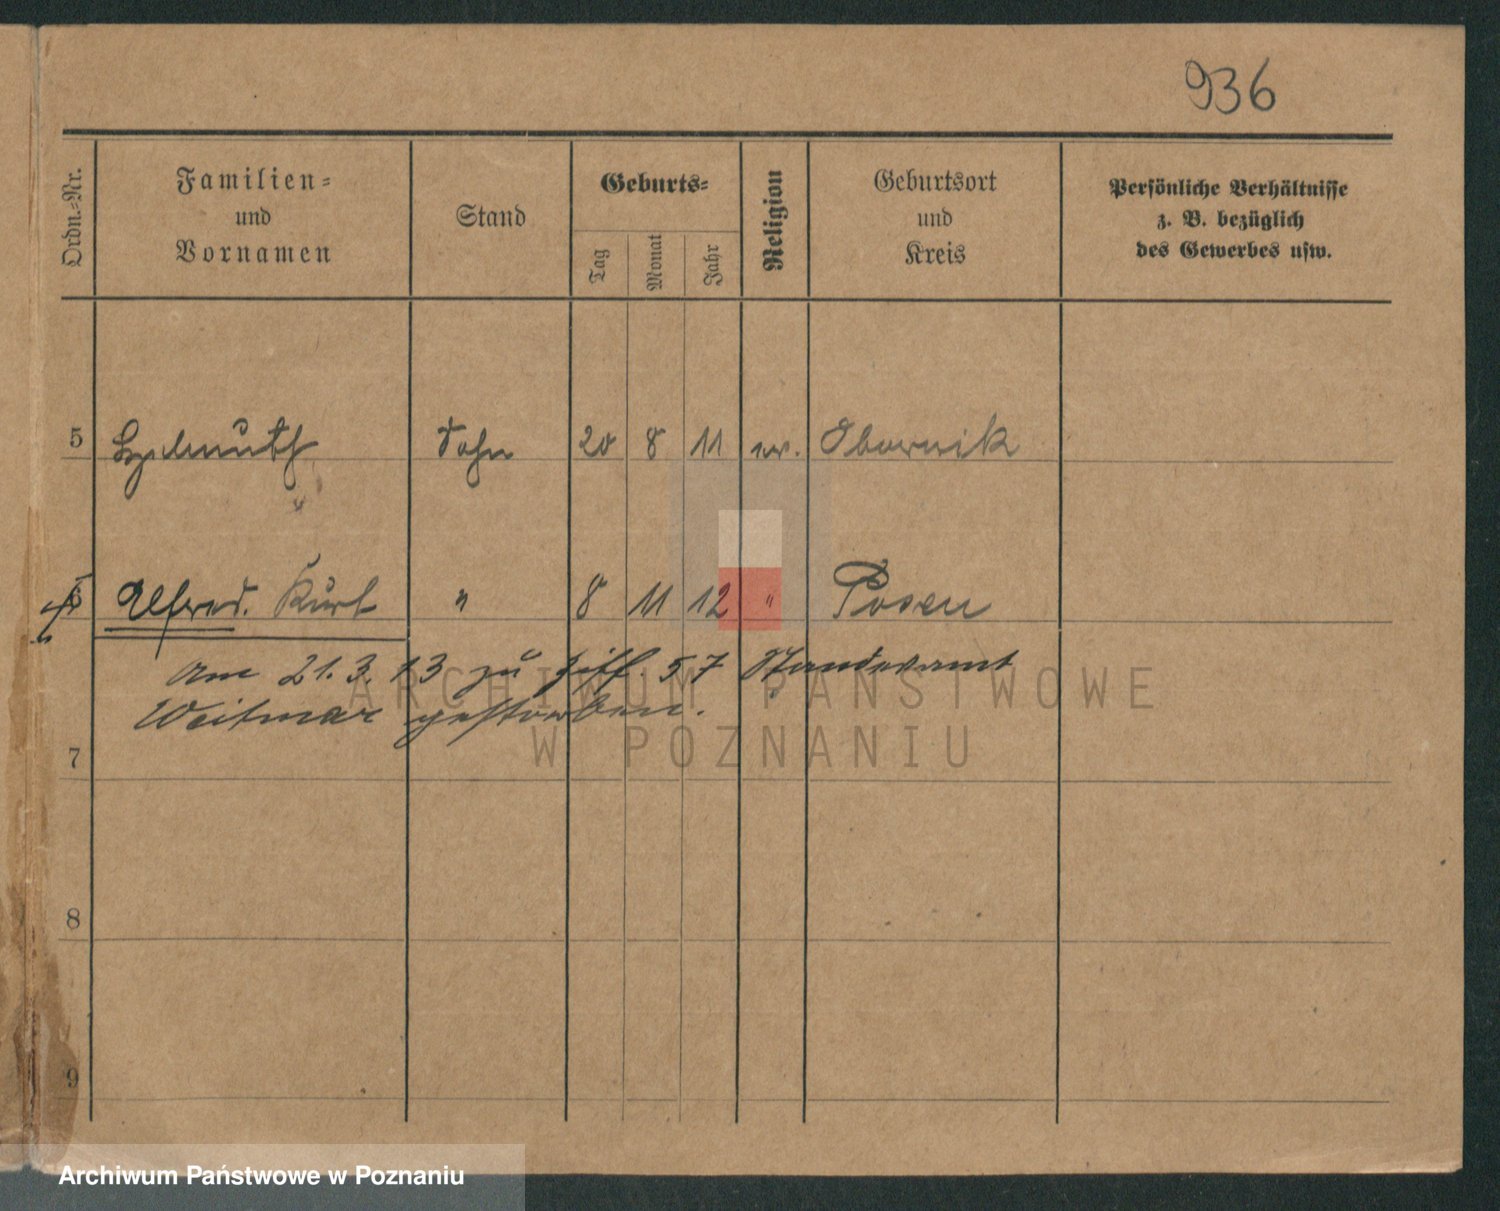 936
Ordn.-Nr.
Familien-
und
Vornamen
Stand
Geburts-
Tag
Monat
Jahr
Religion
Geburtsort
und
Kreis
Persönliche Verhältnisse
z. B. bezüglich
des Gewerbes usw.
5 Helmuth Sohn 20 8 11 ev. Obornik
6 Alfred. Kurt " 8 11 12 " Posen
Am 21.3.13 zu Ziff. 57 Standesamt
Weitmar gestorben.
7
8
9
ARCHIWUM PAŃSTWOWE
W POZNANIU
Archiwum Państwowe w Poznaniu